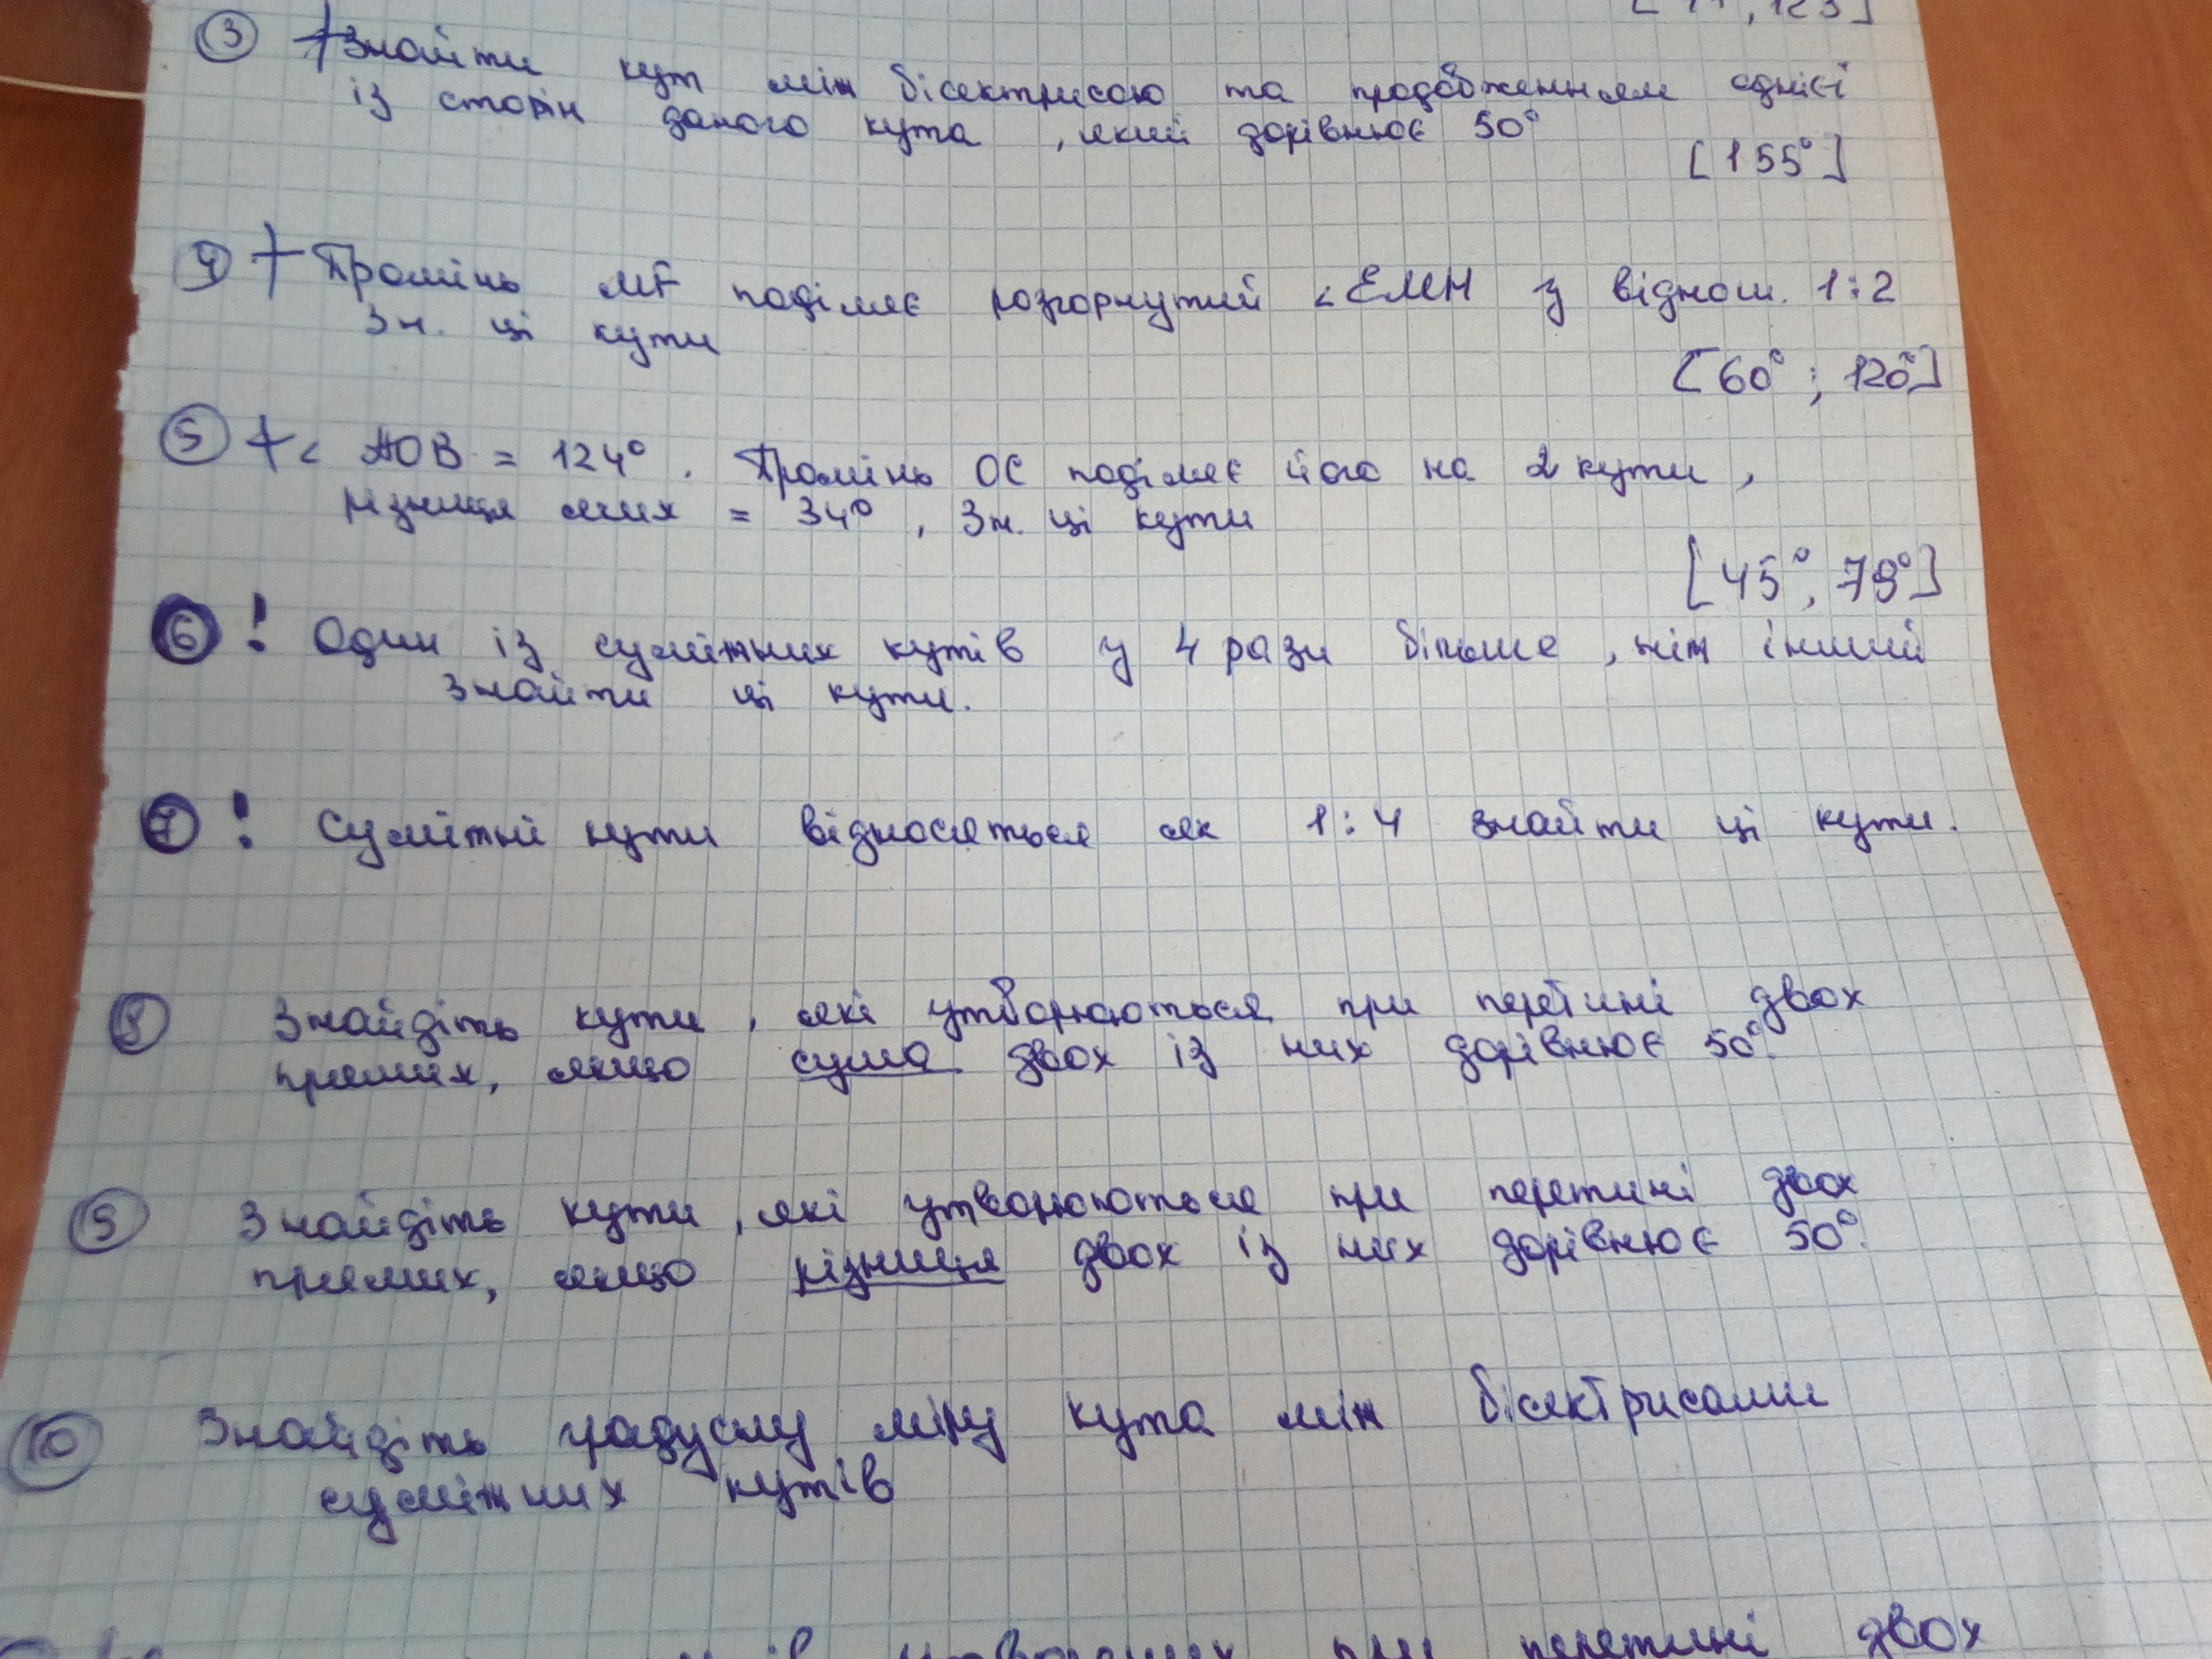 123]
③ + Знайти кут між бісектрисою та продовженням однієї
із сторін даного кута, який дорівнює 50°
[155°]
④ + Промінь MF поділяє розгорнутий ∠EMH у віднош. 1:2
Зн. ці кути
[60°; 120°]
⑤ + ∠ AOB = 124°. Промінь OC поділяє його на 2 кути,
різниця яких = 34°, Зн. ці кути
[45°, 79°]
⑥ ! Один із суміжних кутів у 4 рази більше, ніж інший
Знайти ці кути.
⑦ ! Суміжні кути відносяться як 1:4 знайти ці кути.
⑧ Знайдіть кути, які утворюються при перетині двох
прямих, якщо сума двох із них дорівнює 50°.
⑨ Знайдіть кути, які утворюються при перетині двох
прямих, якщо різниця двох із них дорівнює 50°.
⑩ Знайдіть градусну міру кута між бісектрисами
суміжних кутів
при перетині двох